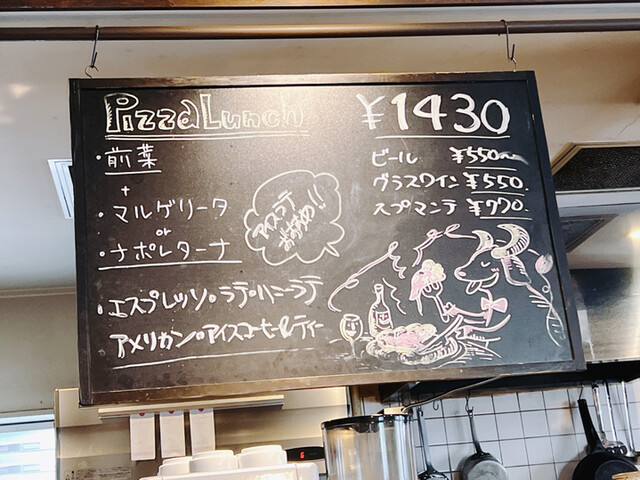 PizzaLunch
¥1430
・前菜
+
・マルゲリータ
or
・ナポレターナ
ビール ¥550〜
グラスワイン ¥550
スプマンテ ¥770
アイスラテ
おすすめ!!
・エスプレッソ・ラテ・ハニーラテ
アメリカン・アイスコーヒー・ティー